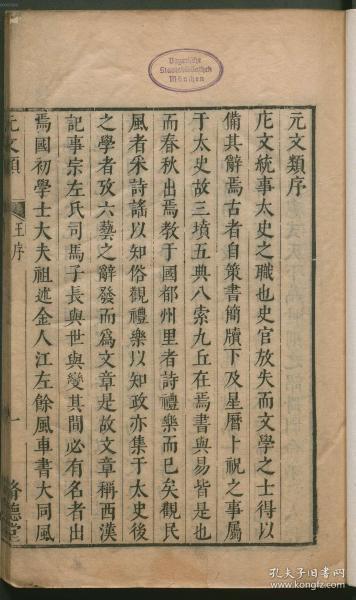 Bayerische
Staatsbibliothek
München
元文類序
庀文統事太史之職也史官放失而文學之士得以
備其辭焉古者自策書簡牘下及星曆卜祝之事屬
于太史故三墳五典八索九丘在焉書與易皆是也
而春秋出焉教于國都州里者詩禮樂而已矣觀民
風者采詩謠以知俗觀禮樂以知政亦集于太史後
之學者攷六藝之辭發而爲文章是故文章稱西漢
記事宗左氏司馬子長與世與變其間必有名者出
焉國初學士大夫祖述金人江左餘風車書大同風
元文類
王序
一
脩德堂
孔夫子旧书网